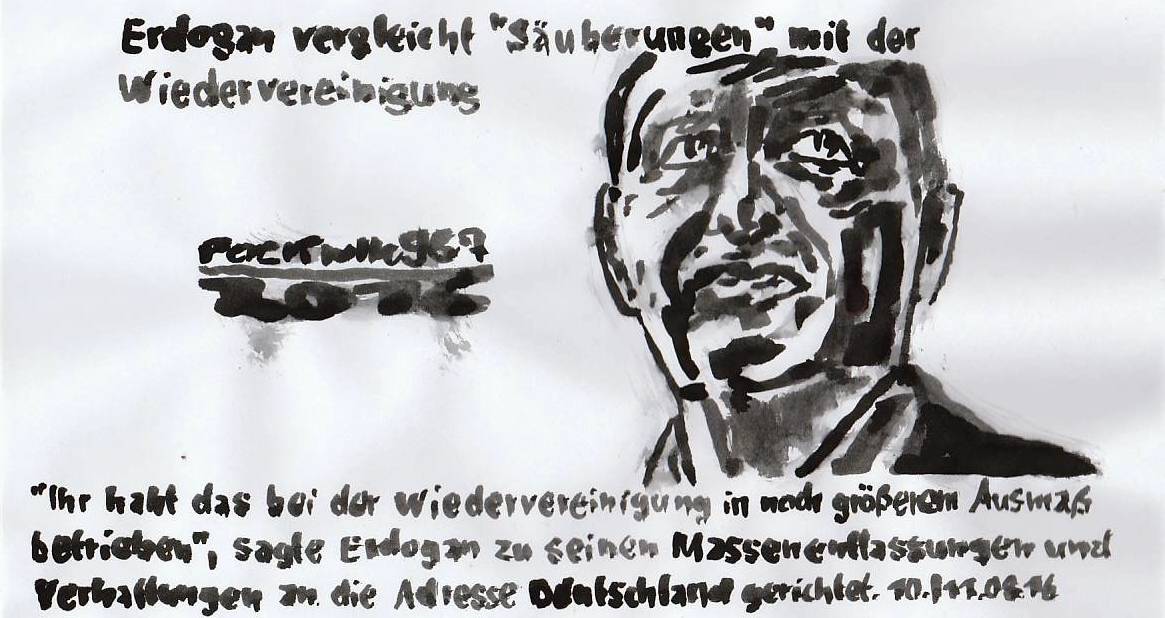 Erdogan vergleicht "Säuberungen" mit der
Wiedervereinigung
2016
"Ihr habt das bei der Wiedervereinigung in noch größerem Ausmaß
betrieben", sagte Erdogan zu seinen Massenentlassungen und
Verhaftungen an die Adresse Deutschland gerichtet. 10./11.08.16